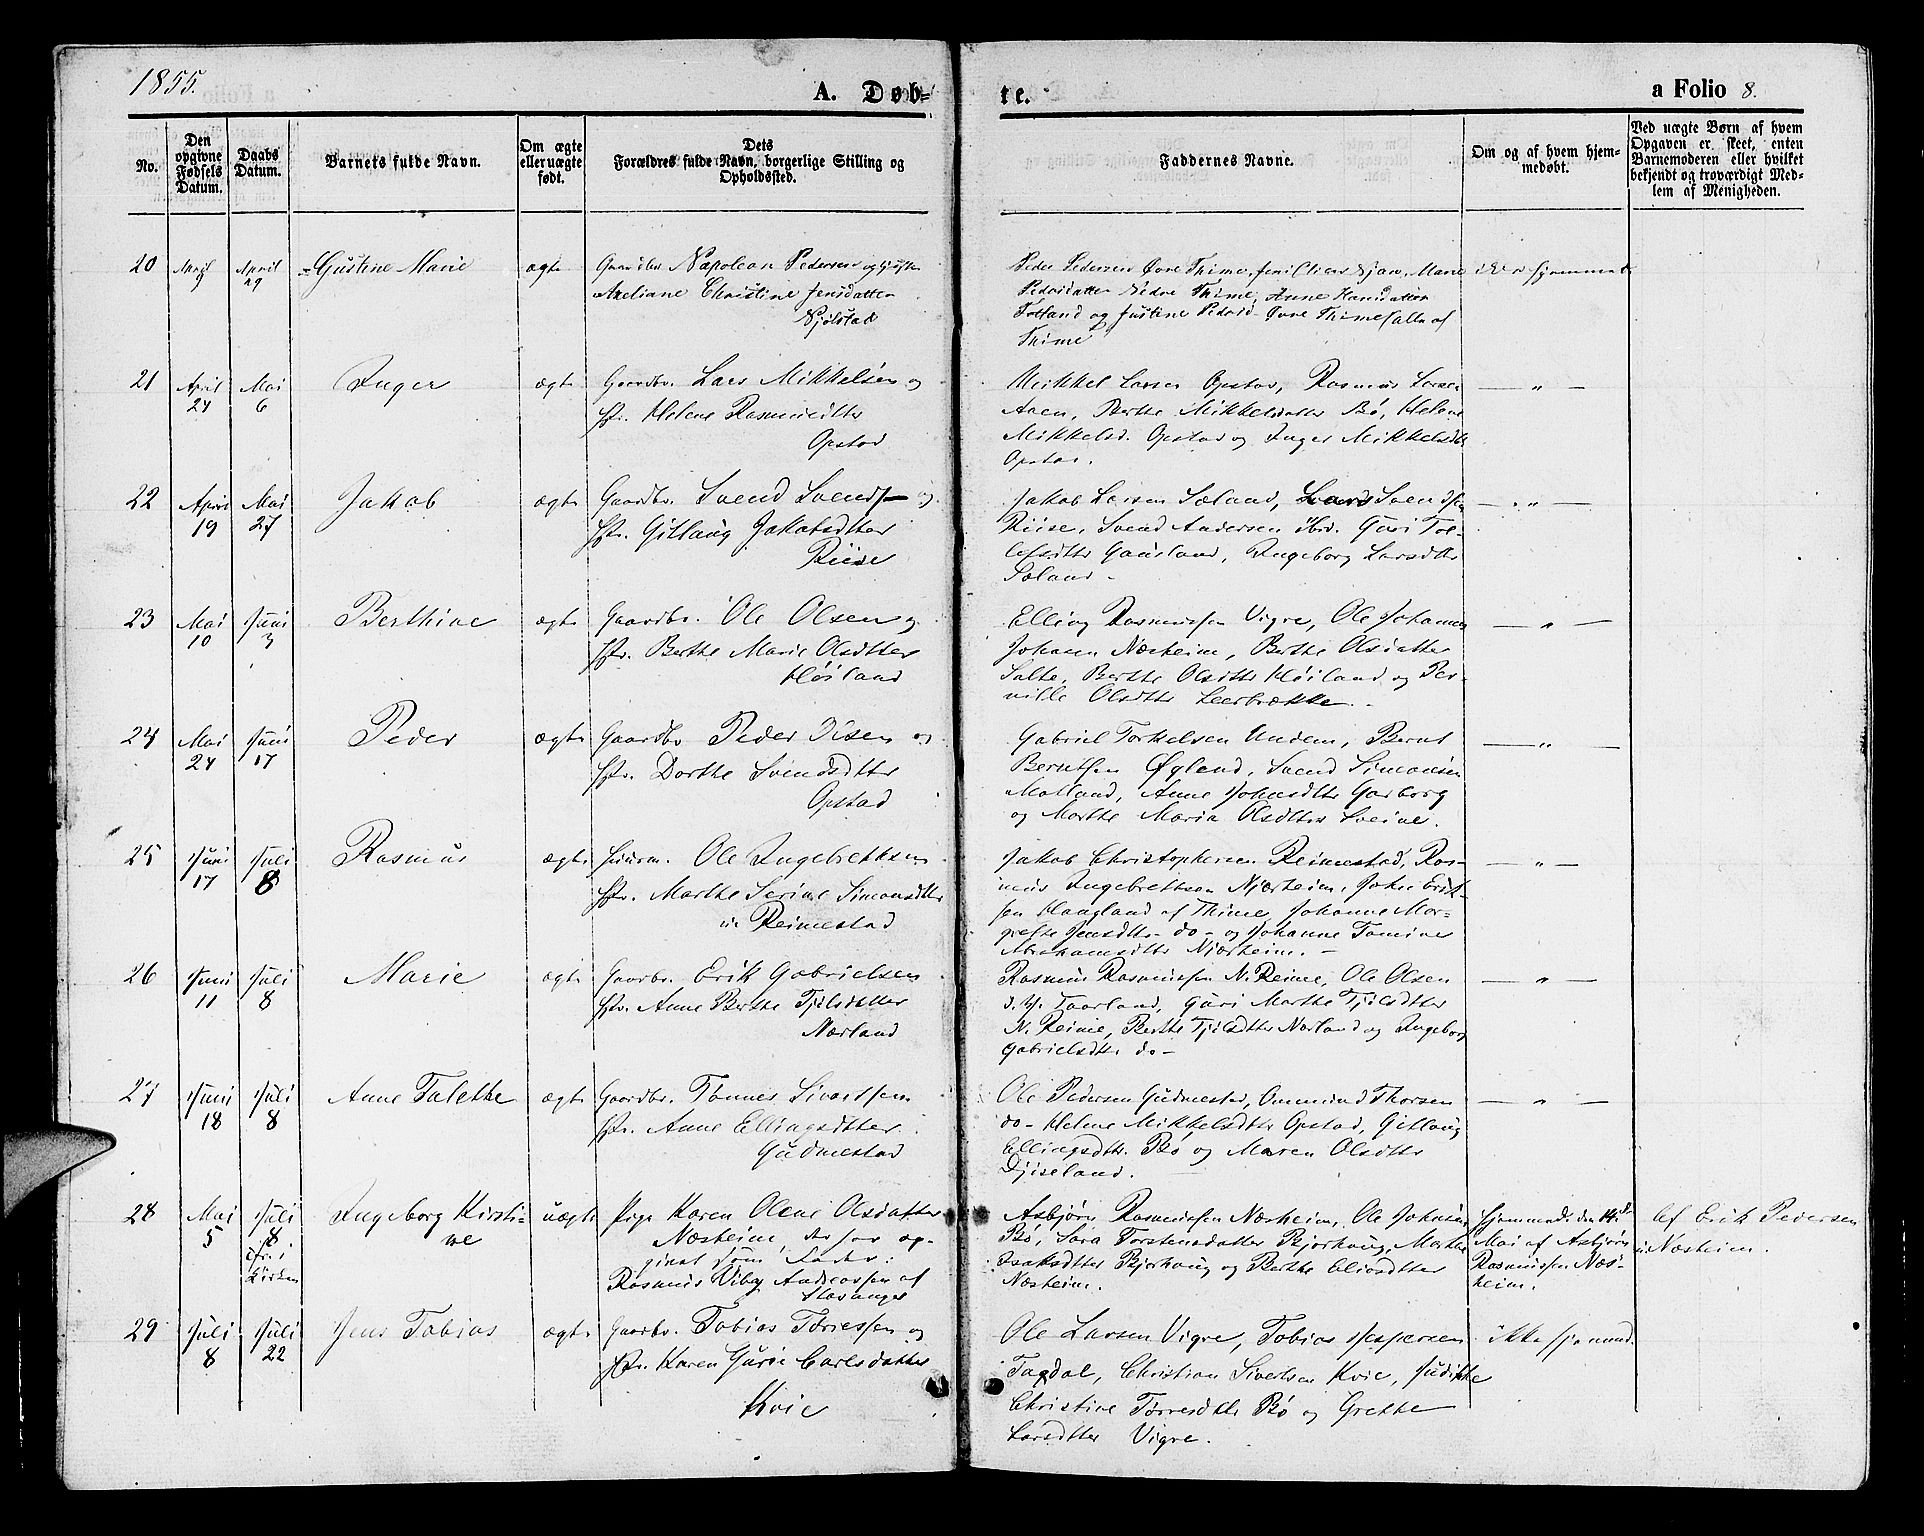 1855.
A. Døb-
te.
a Folio 8.
No.
Den opgivne Fødsels Datum.
Daabs Datum.
Barnets fulde Navn.
Om ægte eller uægte født.
Dets Forældres fulde Navn, borgerlige Stilling og Opholdssted.
Faddernes Navne.
Om og af hvem hjemmedøbt.
Ved uægte Børn af hvem Opgaven er skeet, enten Barnemoderen eller hvilket bekjendt og troværdigt Medlem af Menigheden.
20 April 9 April 29 Gustine Marie ægte Gaardbr. Napoleon Pedersen og Hustru
Axeliane Christine Jensdatter
Njølstad
Peder Pedersen Øvre Thime, Marie ikke hjemmed.
Pedersdatter Nedre Thime, Anne Hansdatter
Totland og Justine Pedersd. Øvre Thime alle af
Thime
21 April 24 Mai 6 Inger ægte Gaardbr. Lars Mikkelsen og
Hstr. Helene Rasmusdtter
Opstad
Mikkel Larsen Opstad, Rasmus Larsen — " —
Aaen, Berthe Mikkelsdatter Bø, Helene
Mikkelsd. Opstad og Inger Mikkelsdtr
Opstad.
22 April 19 Mai 27 Jakob ægte Gaardbr. Svend Svends. og
Hstr. Gitlaug Jakobsdtter
Riise
Jakob Larsen Søland, Lars Svendsen — " —
Riise, Svend Andersen ibid. Guri Tol-
lefsdtter Gausland, Ingeborg Larsdtter
Søland.
23 Mai 10 Juni 3 Berthine ægte Gaardbr. Ole Olsen og
Hstr. Berthe Marie Olsdtter
Høiland
Elling Rasmussen Vigre, Ole Johannes — " —
Johansen Næsheim, Berthe Olsdatter
Salte, Berthe Olsdtter Høiland og Per-
nille Olsdtter Leerbrække.
24 Mai 24 Juni 17 Peder ægte Gaardbr. Peder Disen og
Hstr. Dorthe Svendsdtter
Opstad
Gabriel Torkelsen Undem, Bernt — " —
Berntsen Øgland, Svend Simonsen
Motland, Anne Johnsdtter Garborg
og Marthe Maria Olsdtter Sveine.
25 Juni 17 Juli 8 Rasmus ægte Huusm. Ole Ingebretksen
Hstr. Marthe Serine Simonsdtter
u. Reimestad
Jakob Christophersen Reimestad, Ras- — " —
mus Ingebrettsen Njærheim, John Erik-
sen Haugland af Thime, Johanne Mar-
grethe Jensdtter do - og Johanne Tomine
Abrahamsdtter Njærheim. -
26 Juni 11 Juli 8 Marie ægte Gaardbr. Erik Gabrielsen
Hstr. Anne Berthe Tjølsdatter
Nærland
Rasmus Rasmussen N. Reime, Ole Olsen — " —
d. y. Taarland, Guri Marthe Tjølsdtter
N. Reime, Berthe Tjølsdtter Nærland og Ingeborg
Gabrielsdtter do -
27 Juni 18 Juli 8 Anne Talethe ægte Gaardbr. Tønnes Sivertsen
Hstr. Anne Ellingsdtter
Gudmestad
Ole Pedersen Gudmestad, Ommund Thorsen — " —
do - Helene Mikkelsdtter Opstad, Gitlaug
Ellingsdtter Bø og Maren Olsdtter
Djiseland.
28 Mai 5 Juli 8. fr. i Kirken Ingeborg Kirsti-
ne uægte Pige Karen Olene Olsdatter
Næsheim, der har op-
givet som Fader:
Rasmus Viby Andreassen af
Stavanger
Asbjørn Rasmussen Næsheim, Ole Johnsen
Bø, Sara Torstensdatter Bjorhaug, Marthe
Isaksdtter Bjorhaug og Berthe Eliasdtter
Næsheim.
Hjemmed. den 14de
Mai af Asbjørn
Rasmussen Næs-
heim.
Af Erik Pedersen
Næsheim.
29 Juli 8 Juli 22 Jens Tobias ægte Gaardbr. Tobias Tørressen og
Hstr. Karen Gurie Carlsdatter
Hvie
Ole Larsen Vigre, Tobias Jespersen ikke hjemmd.
Tagdal, Christian Sivertsen Kvie, Judithe
Christine Tørresdtter Bø og Grethe
Larsdtter Vigre.